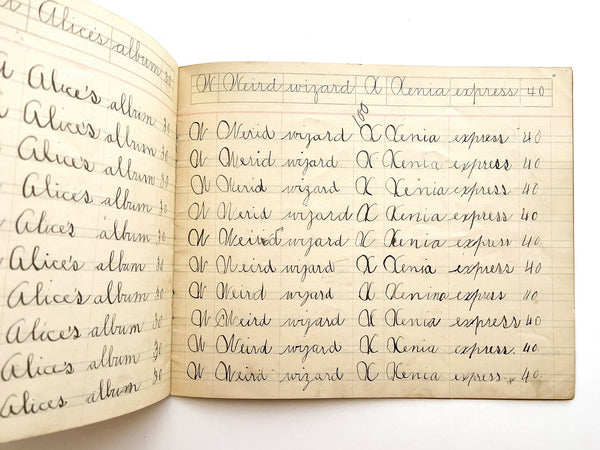 Alice's album 30
A Alice's album 30
Alice's album 30
Alice's album 30
Alice's album 30
Alice's album 30
Alice's album 30
Alice's album 30
Alice's album 30
Alice's album 30
Alices album 30
W Weird wizard X Xenia express 40
100
W Werid wizard X Xenia express 40
W Werid wizard X Xenia express 40
W Werid wizard X Xenia express 40
W Werid wizard X Xenia express 40
W Weird wizard X Xenia express 40
W Weird wizard X Xenia express 40
W Weird wizard X Xenina express 40
W Weird wizard X Xenia express 40
W Weird wizard X Xenia express. 40
W Weird wizard X Xenia express. 40